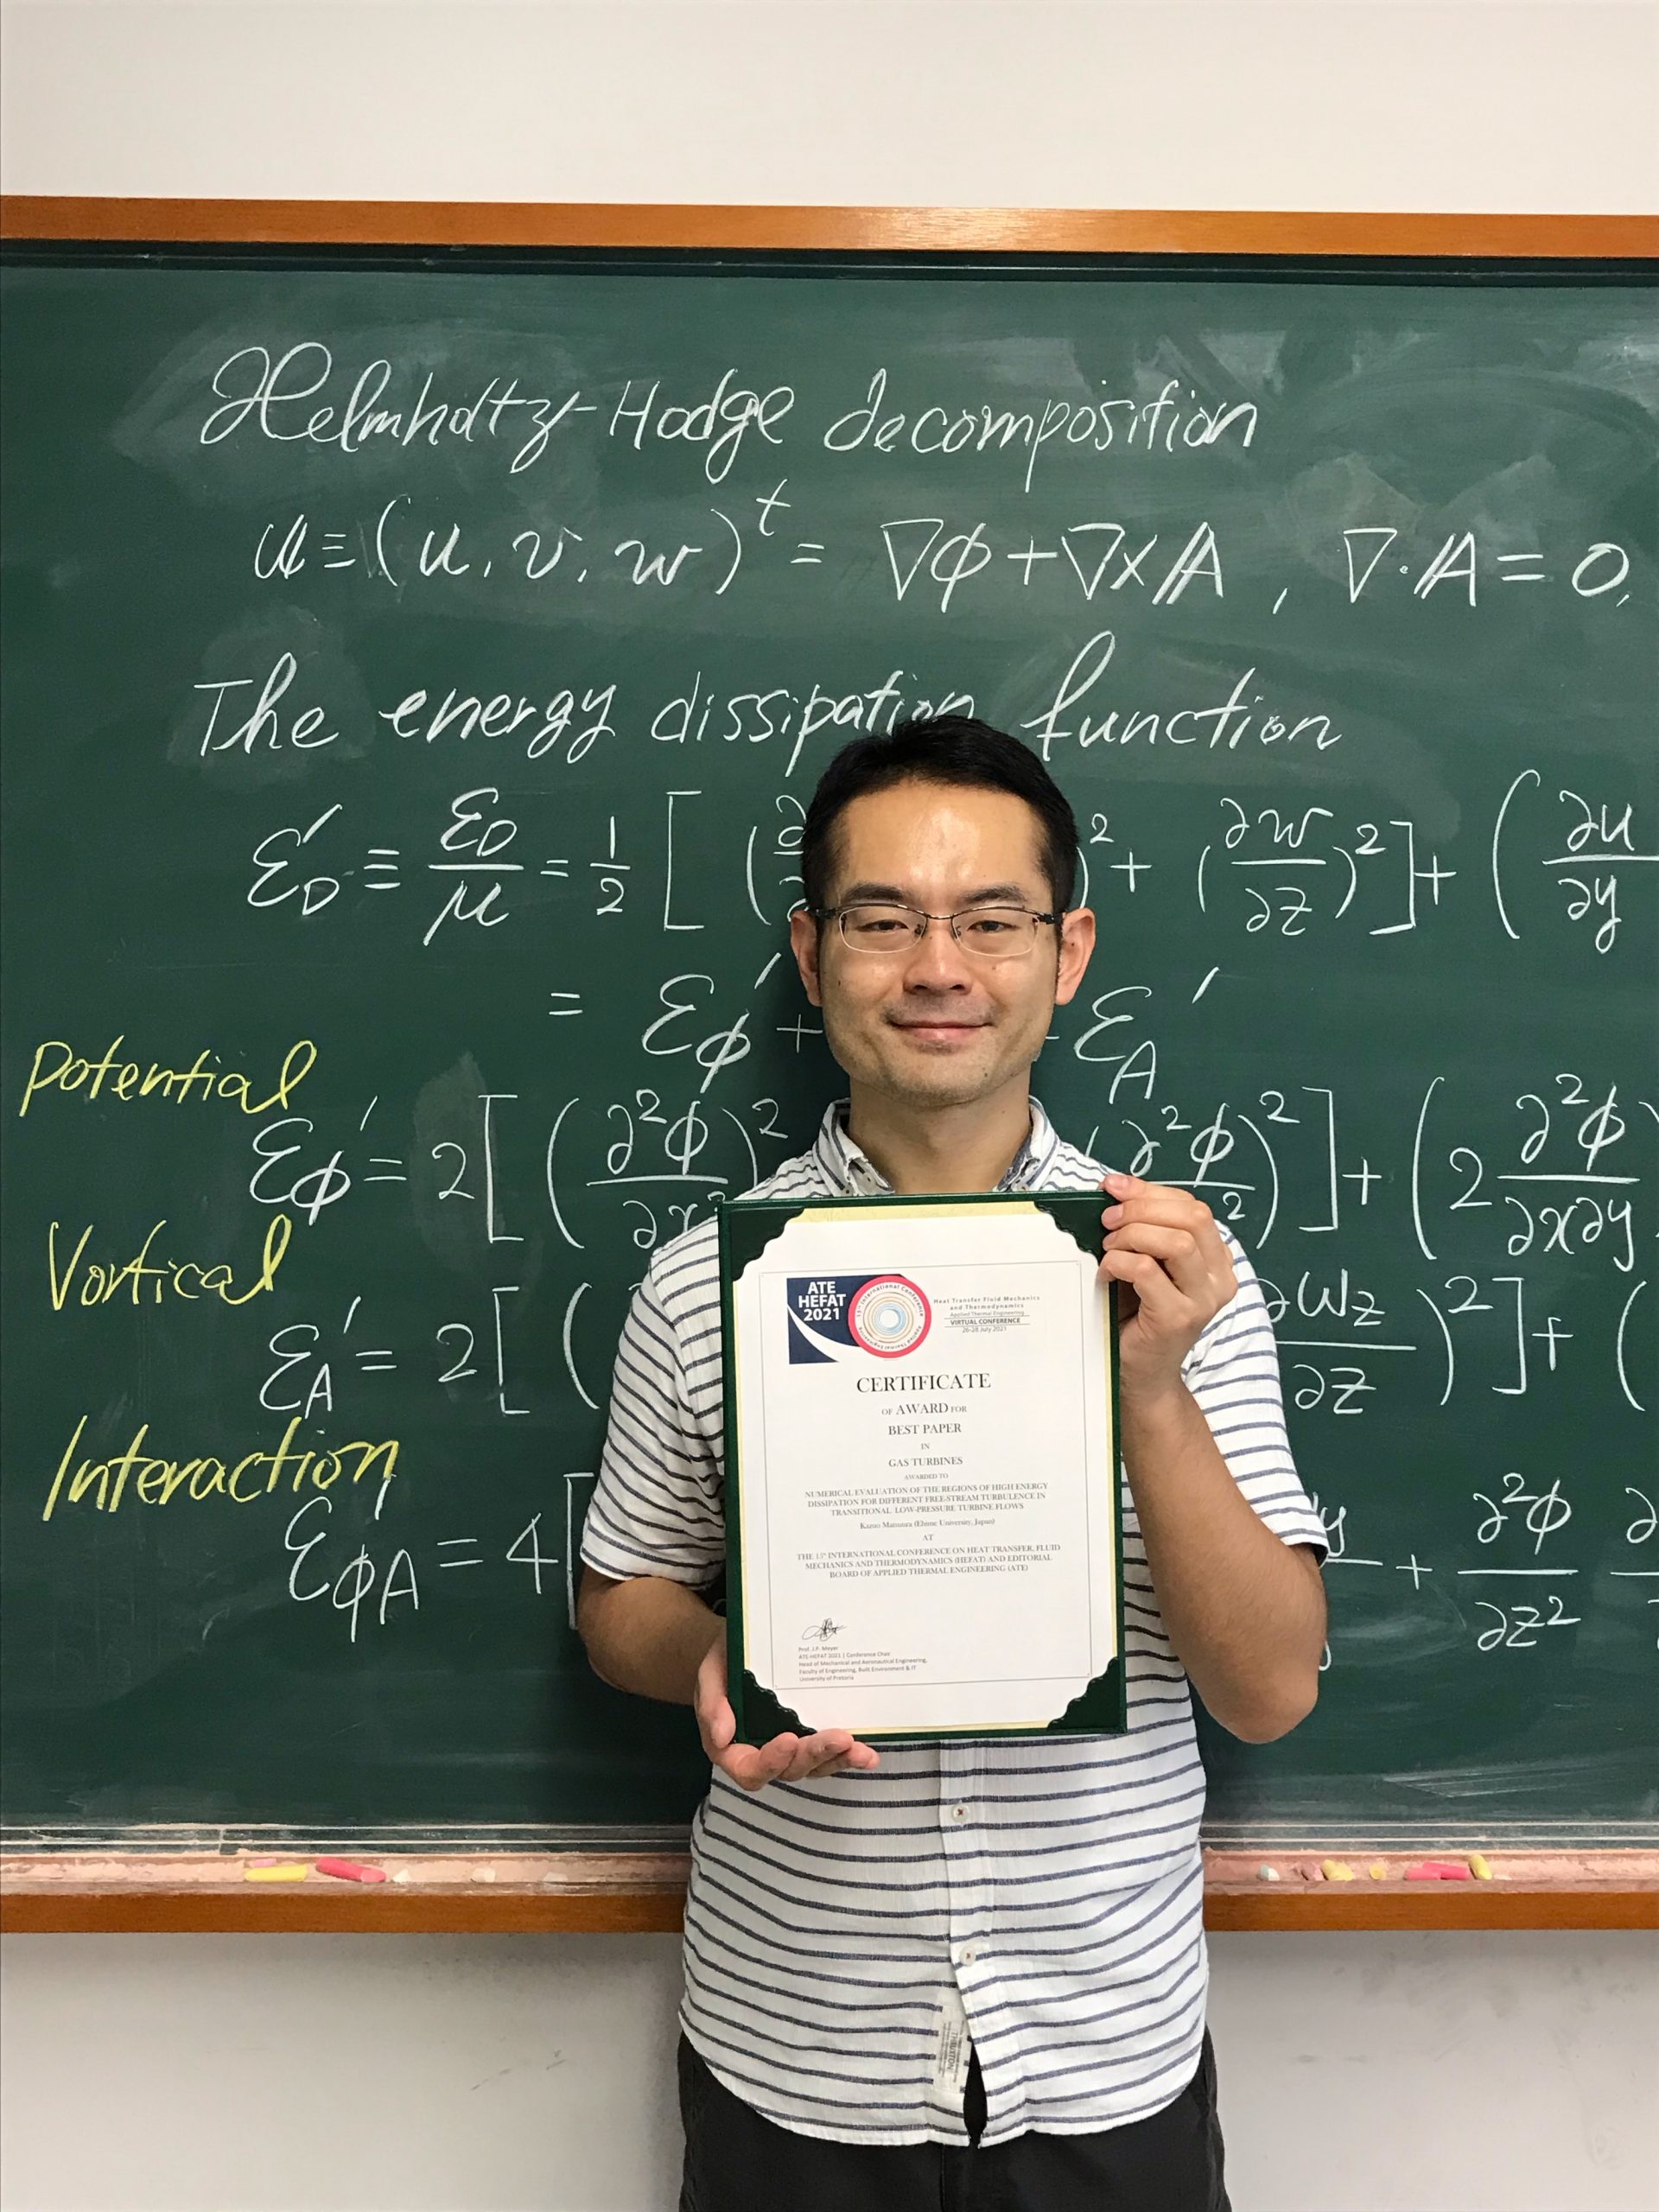 Helmholtz-Hodge decomposition
𝕦 ≡ (u, v, w)^t = ∇ϕ + ∇×𝔸, ∇·𝔸 = 0,
The energy dissipation function
ε'_D ≡ ε_D/μ = 1/2 [ (∂ )^2 + (∂w/∂z)^2 ] + (∂u/∂y
= ε'_ϕ + ε'_A
Potential
ε'_ϕ = 2 [ (∂^2ϕ/∂x^2)^2 (∂^2ϕ/ ^2)^2 ] + (2 ∂^2ϕ/∂x∂y
Vortical
ε'_A = 2 [ ( ∂ω_z/∂z )^2 ] + (
Interaction
ε'_ϕA = 4 [ + ∂^2ϕ/∂z^2 ∂
ATE
HEFAT
2021
15th International Conference
Heat Transfer Fluid Mechanics
and Thermodynamics
Applied Thermal Engineering
VIRTUAL CONFERENCE
26-28 July 2021
CERTIFICATE
OF AWARD FOR
BEST PAPER
IN
GAS TURBINES
AWARDED TO
NUMERICAL EVALUATION OF THE REGIONS OF HIGH ENERGY
DISSIPATION FOR DIFFERENT FREE-STREAM TURBULENCE IN
TRANSITIONAL LOW-PRESSURE TURBINE FLOWS
Kazuo Matsuura (Ehime University, Japan)
AT
THE 15th INTERNATIONAL CONFERENCE ON HEAT TRANSFER, FLUID
MECHANICS AND THERMODYNAMICS (HEFAT) AND EDITORIAL
BOARD OF APPLIED THERMAL ENGINEERING (ATE)
Prof. J.P. Meyer
ATE-HEFAT 2021 | Conference Chair
Head of Mechanical and Aeronautical Engineering,
Faculty of Engineering, Built Environment & IT
University of Pretoria